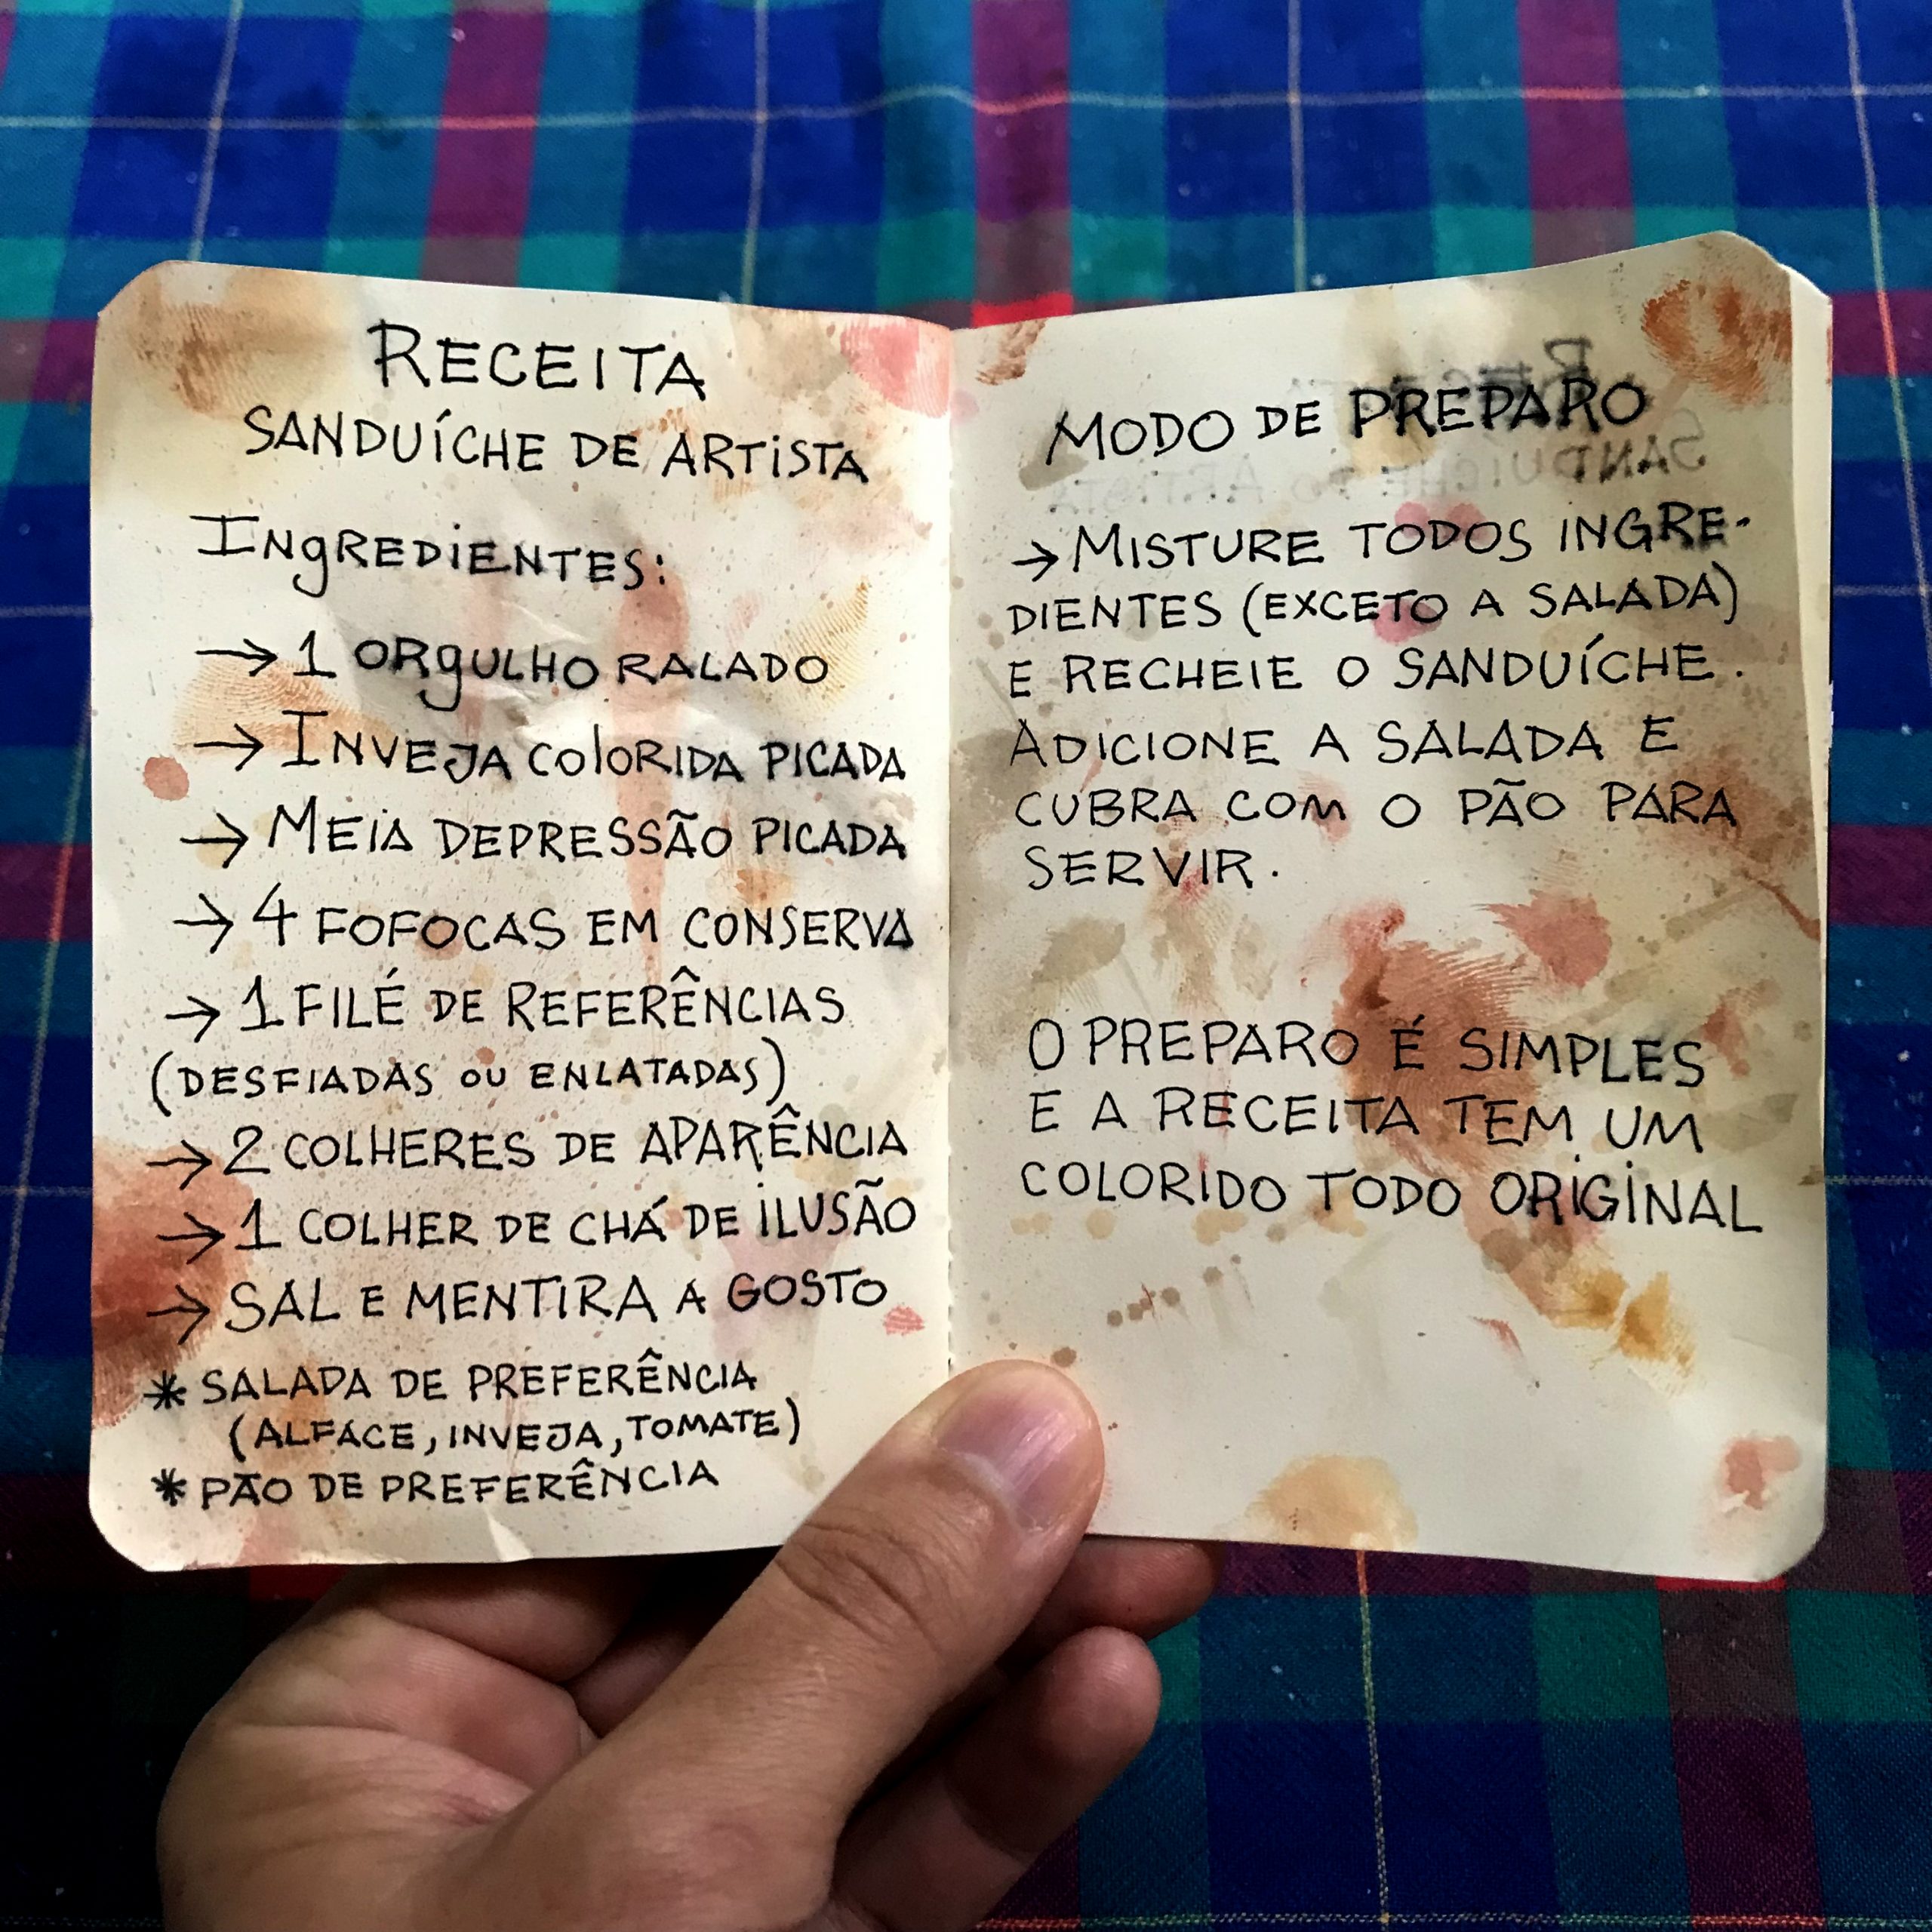 RECEITA
SANDUÍCHE DE ARTISTA
INGREDIENTES:
→ 1 ORGULHO RALADO
→ INVEJA COLORIDA PICADA
→ MEIA DEPRESSÃO PICADA
→ 4 FOFOCAS EM CONSERVA
→ 1 FILÉ DE REFERÊNCIAS
(DESFIADAS OU ENLATADAS)
→ 2 COLHERES DE APARÊNCIA
→ 1 COLHER DE CHÁ DE ILUSÃO
→ SAL E MENTIRA A GOSTO
* SALADA DE PREFERÊNCIA
(ALFACE, INVEJA, TOMATE)
* PÃO DE PREFERÊNCIA
MODO DE PREPARO
→ MISTURE TODOS INGRE-
DIENTES (EXCETO A SALADA)
E RECHEIE O SANDUÍCHE.
ADICIONE A SALADA E
CUBRA COM O PÃO PARA
SERVIR.
O PREPARO É SIMPLES
E A RECEITA TEM UM
COLORIDO TODO ORIGINAL